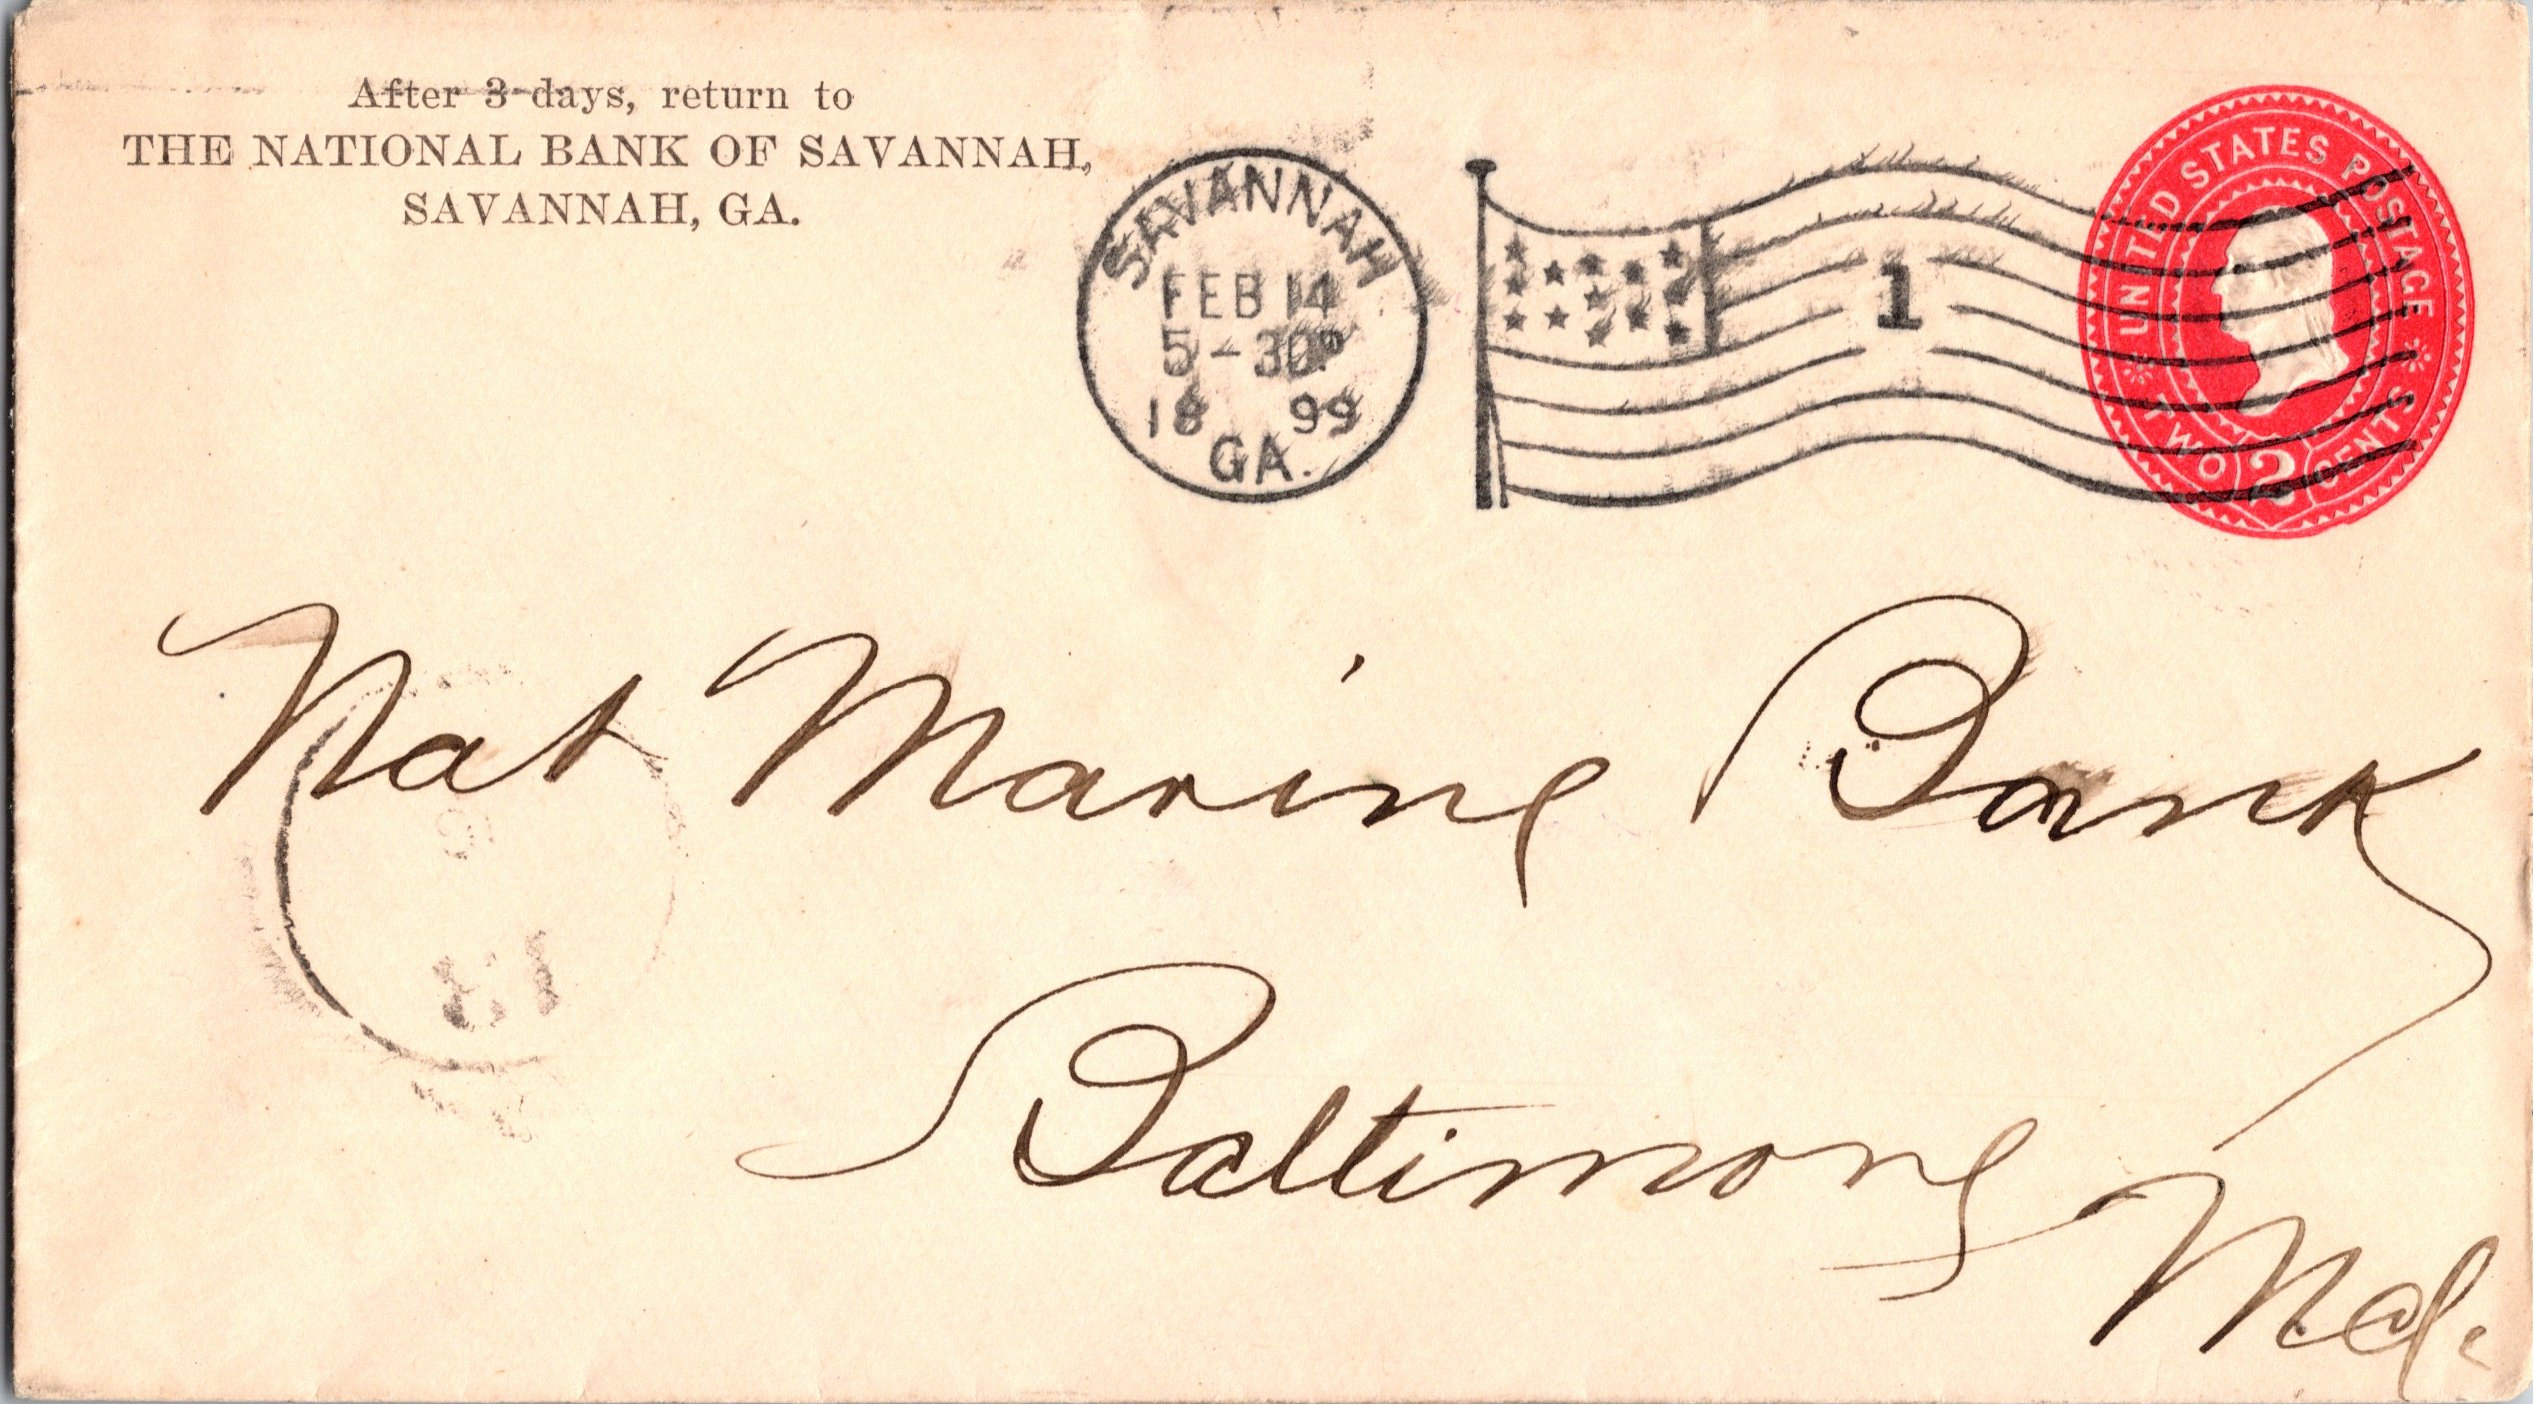 After 3 days, return to
THE NATIONAL BANK OF SAVANNAH,
SAVANNAH, GA.
SAVANNAH
FEB 14
5-30P
18 99
GA.
1
UNITED STATES POSTAGE
TWO 2 CENTS
Nat Marine Bank
Baltimore
Md.